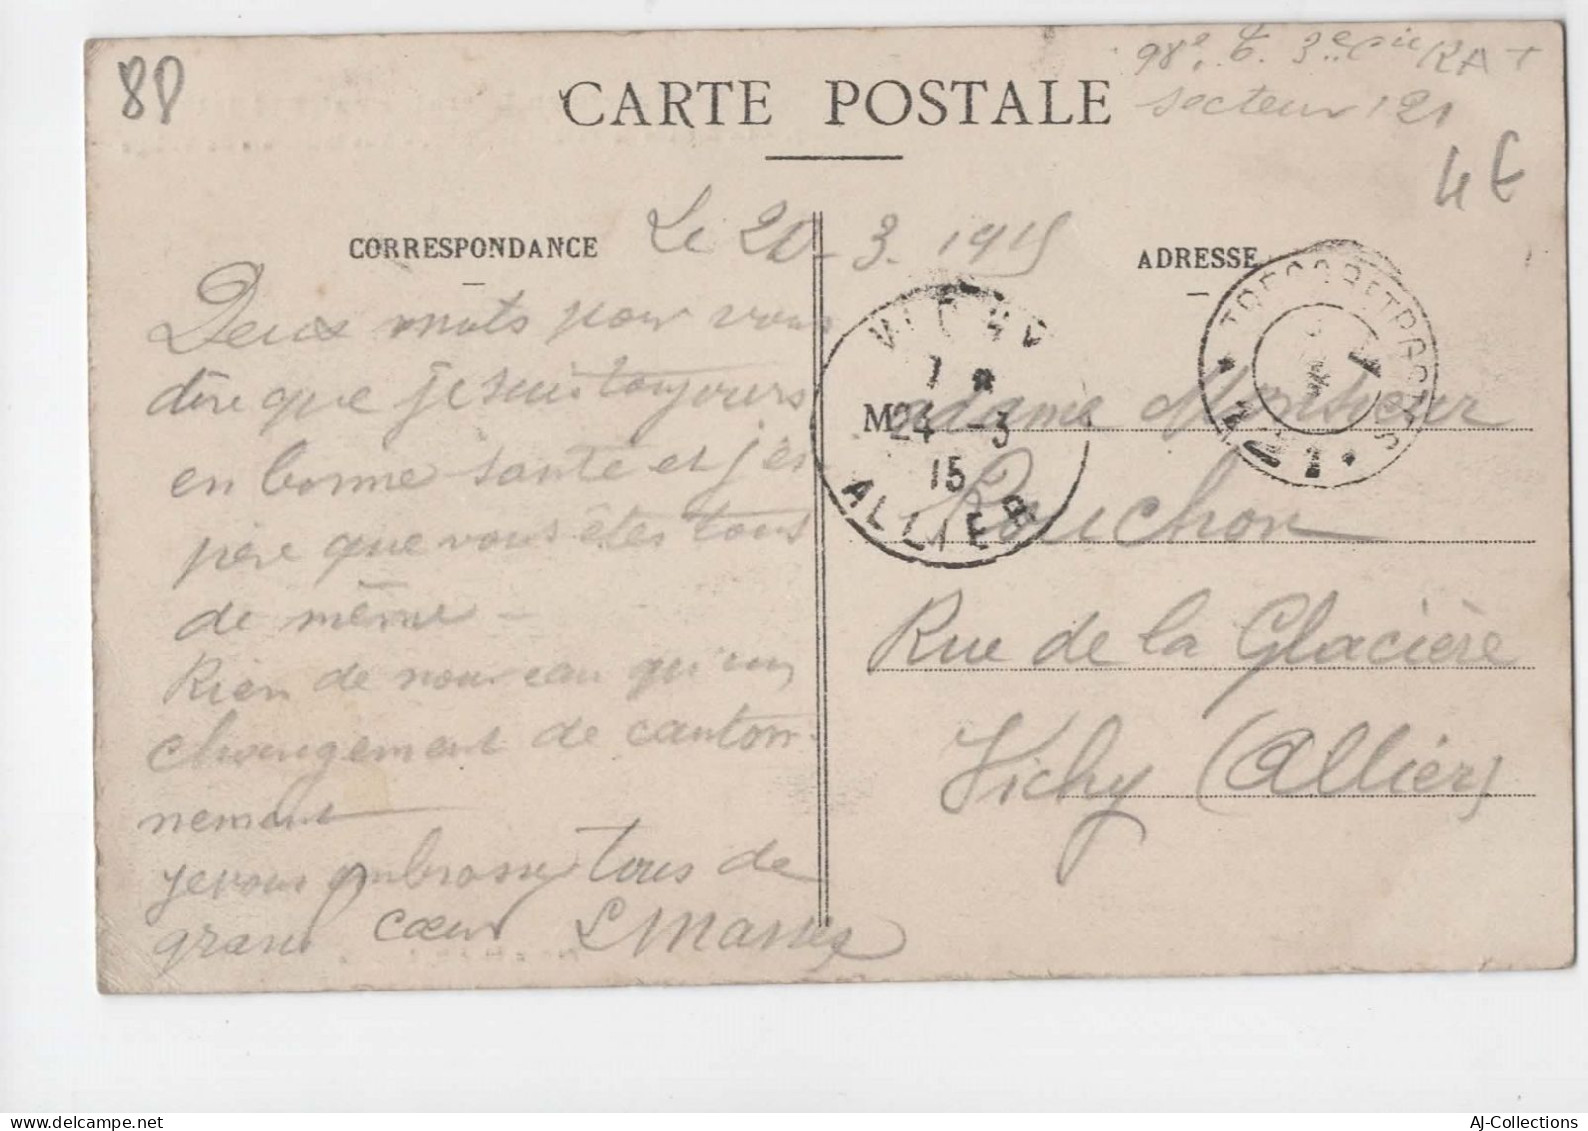 80
98e t. 3e Cie RAT
secteur 121
CARTE POSTALE
4 €
CORRESPONDANCE
Le 20-3. 1915
ADRESSE
Deux mots pour vous
dire que je suis toujours
en bonne santé et j'es-
père que vous êtes tous
de même -
Rien de nouveau qu'un
changement de canton-
nement
je vous embrasse tous de
grand cœur
VICHY
7 *
24 -3
15
ALLIER
TRESOR ET POSTES
Madame Monsieur
Rouchon
Rue de la Glacière
Vichy (Allier)
delcampe.net
AJ-Collections